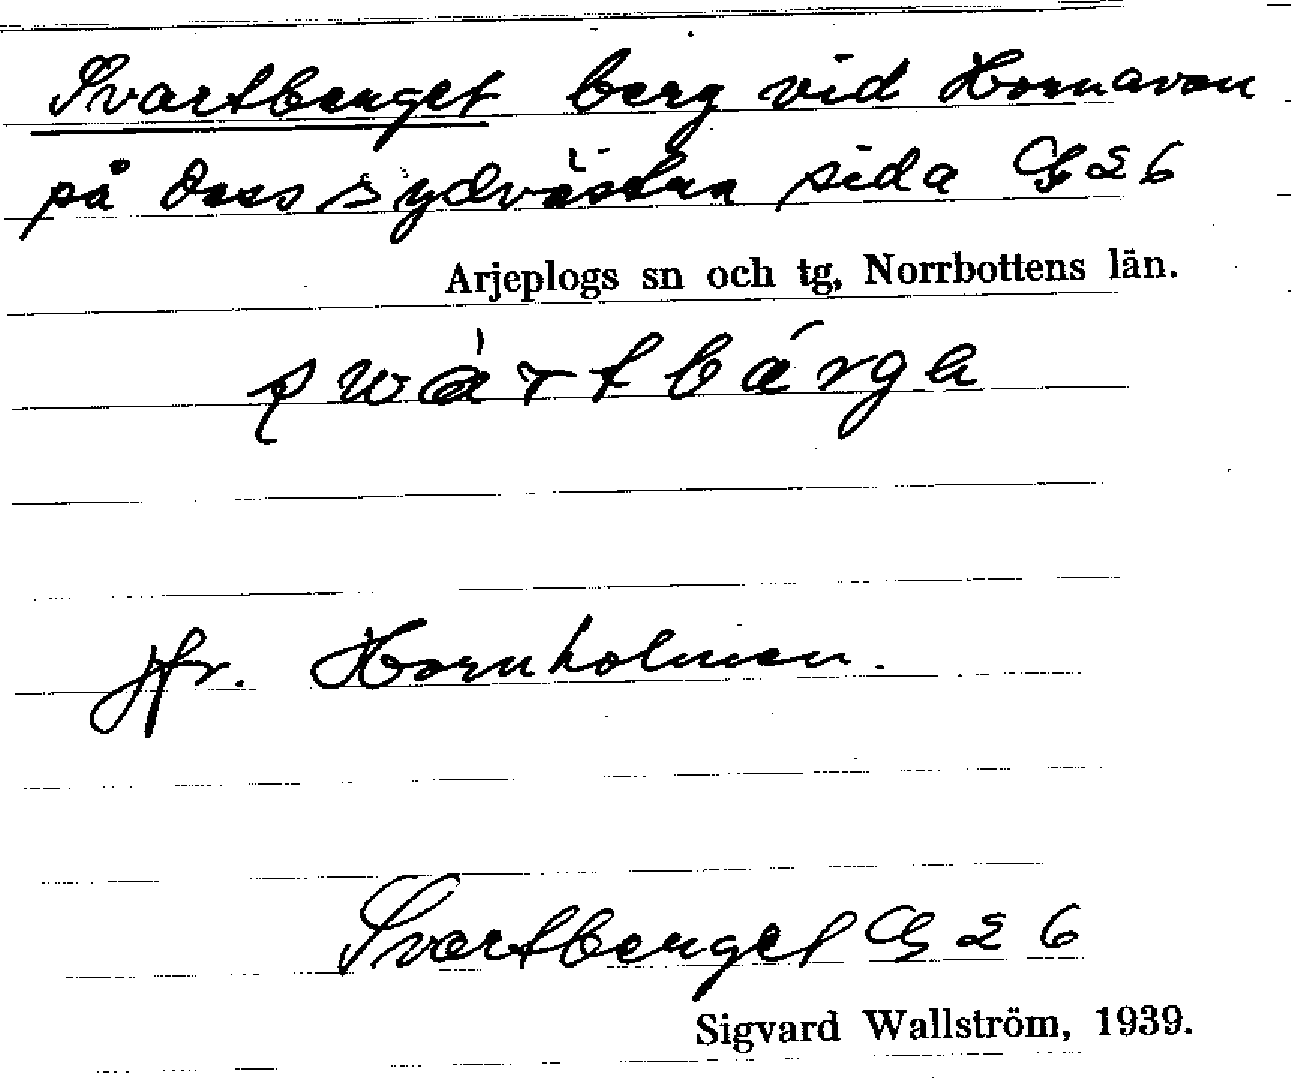 Svartberget berg vid Hornavan
på dess sydvästra sida G 26
Arjeplogs sn och tg, Norrbottens län.
swártbárga
Jfr. Hornholmen.
Svartberget G 26
Sigvard Wallström, 1939.